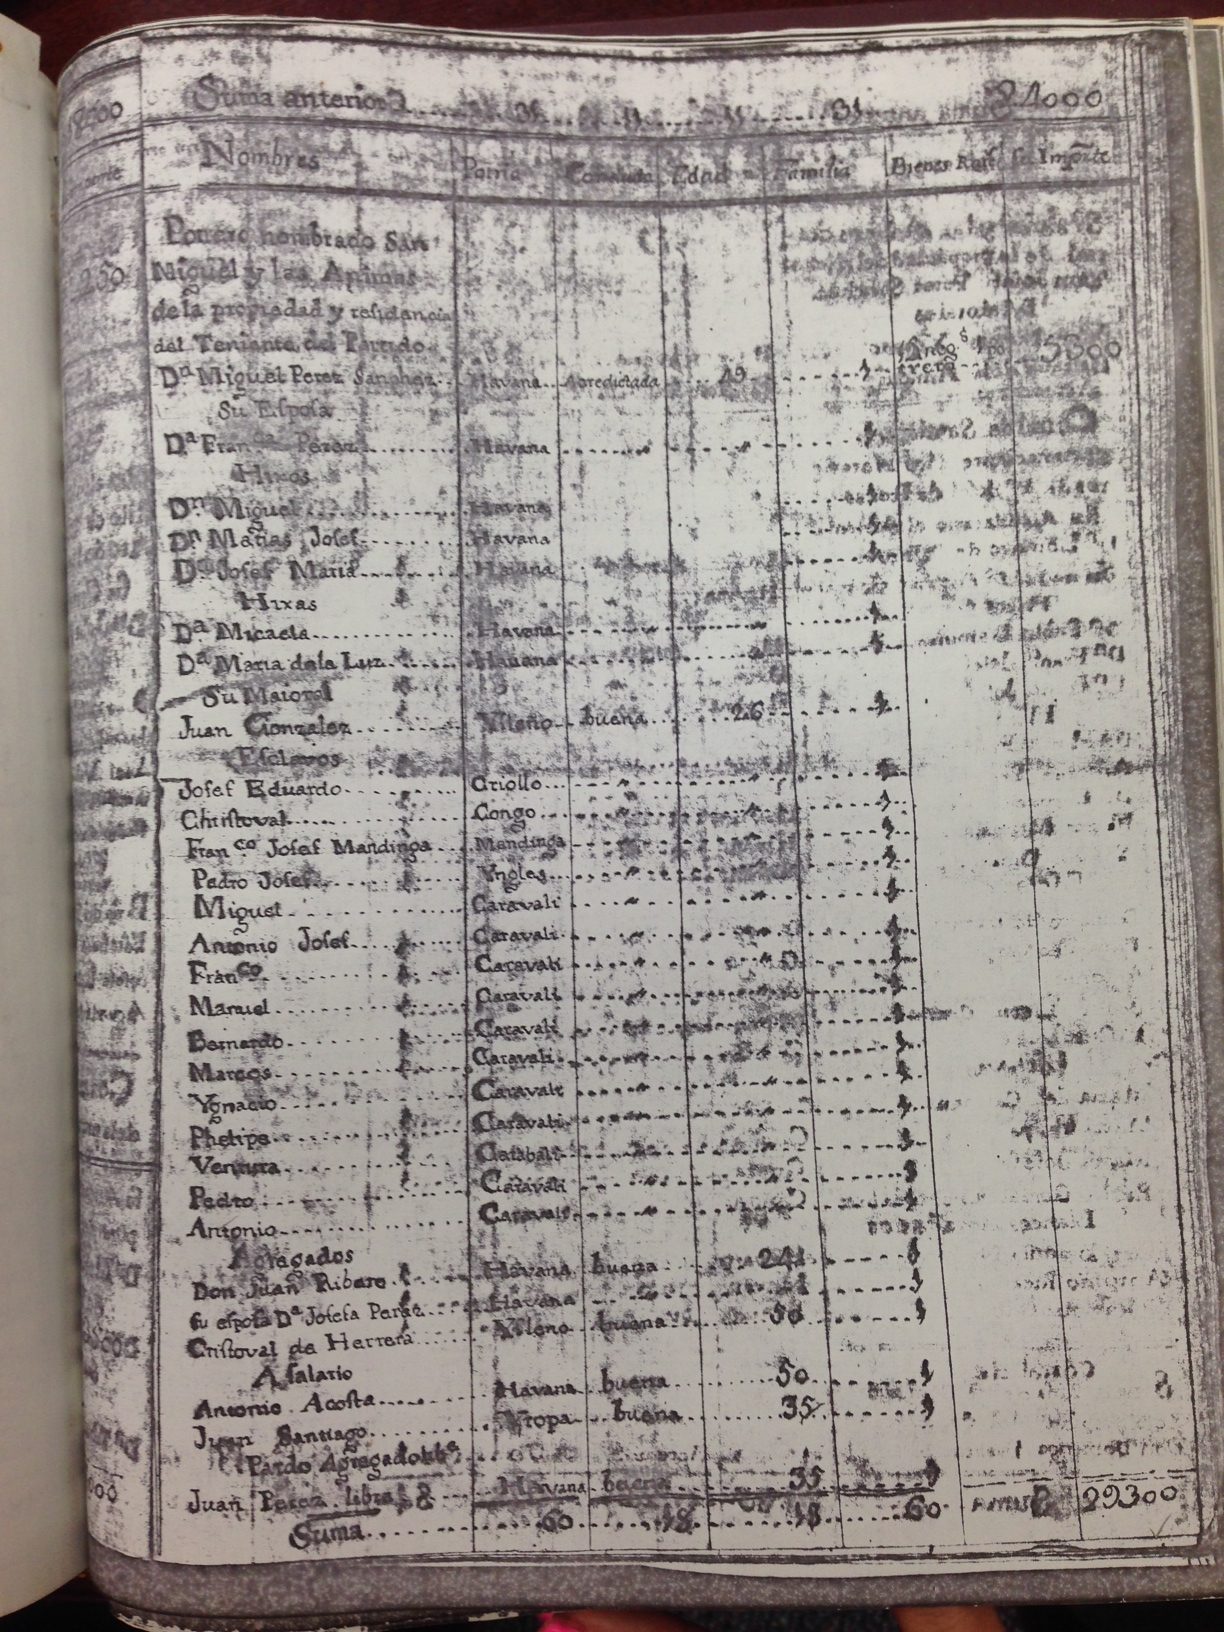 Suma anterior 31 11 11 31
Nombres Patria Conducta Edad Familia Bienes Raif su Importe
Potrero nombrado San
Miguel y las Animas
de la propiedad y residencia
del Teniente del Partido
Dn Miguel Perez Sanchez Havana Acredictada 49 1 5300
Su Esposa
Da Franca Perez Havana 1
Hixos
Dn Miguel Havana 1
Dn Matias Josef Havana 1
Dn Josef Maria Havana 1
Hixas
Da Micaela Havana 1
Da Maria de la Luz Havana 1
Su Maioral
Juan Gonzalez Ysleño buena 26 1
Esclavos
Josef Eduardo Criollo 1
Christoval Congo 1
Franco Josef Mandinga Mandinga 1
Pedro Josef Yngles 1
Miguel Caravali 1
Antonio Josef Caravali 1
Franco Caravali 1
Manuel Caravali 1
Bernardo Caravali 1
Marcos Caravali 1
Ygnacio Caravali 1
Phelipe Caravali 1
Ventura Carabali 1
Pedro Caravali 1
Antonio Caravali 1
Agregados
Don Juan Ribero Havana buena 24 1
su esposa Da Josefa Perez Havana 1
Cristoval de Herrera Ysleno buena 50 1
A salario
Antonio Acosta Havana buena 50 1
Juan Santiago Yropa buena 35 1
Pardo Agregado
Juan Perez libre Havana buena 35 1
Suma 60 18 18 60 29300